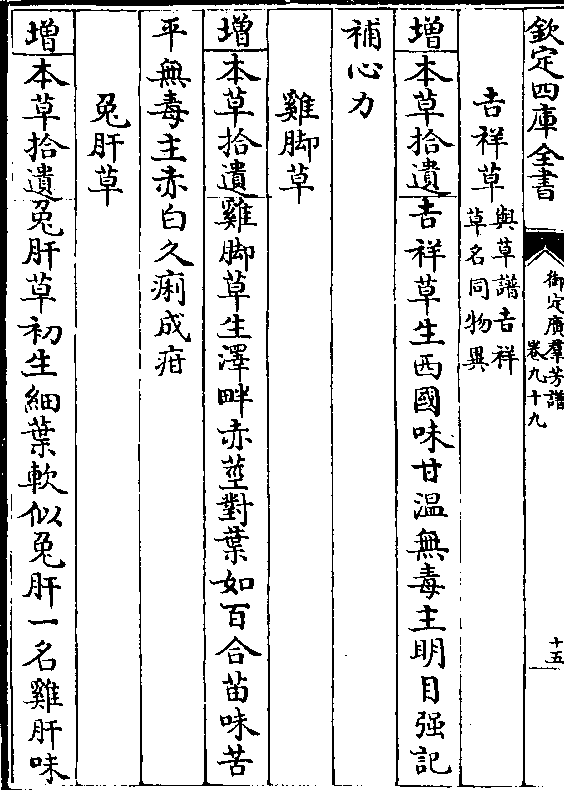 欽定四庫全書
御定廣羣芳譜
卷九十九
十五
吉祥草
與草譜吉祥
草名同物異
增本草拾遺吉祥草生西國味甘溫無毒主明目强記
補心力
雞脚草
增本草拾遺雞脚草生澤畔赤莖對葉如百合苗味苦
平無毒主赤白久痢成疳
兔肝草
增本草拾遺兔肝草初生細葉軟似兔肝一名雞肝味